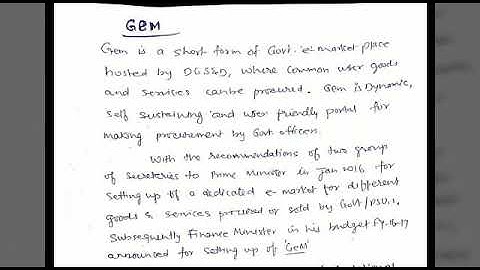 GeM
Gem is a short form of Govt. e-market place
hosted by DGS&D, where common user goods
and services can be procured. Gem is Dynamic,
self sustaining and user friendly portal for
making procurement by Govt officers.
With the recommendations of two group
of secreteries to Prime Minister in Jan 2016, for
setting up of a dedicated e-market for different
goods & services procured or sold by Govt/PSUs,
Subsequently Finance Minister in his budget FY-16-17
announced for setting up of "GeM"